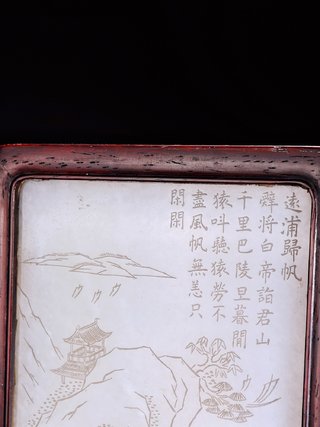 遠浦歸帆
辤將白帝詣君山
千里巴陵旦暮間
猿叫聽猿勞不
盡風帆無恙只
閑閑